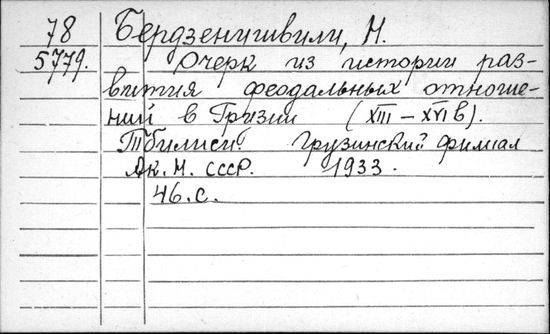 78 Бердзенишвили, Н.
5779. Очерк из истории раз-
вития феодальных отноше-
ний в Грузии (XIII – XVI в).
Тбилиси. Грузинский филиал
Ак. Н. СССР. 1933.
46.с.